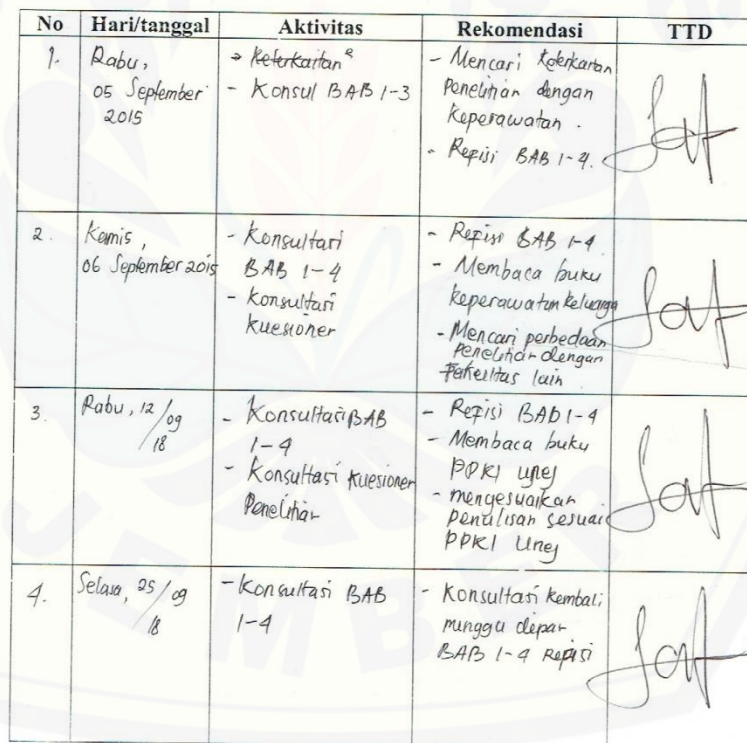 No Hari/tanggal Aktivitas Rekomendasi TTD
1. Rabu,
05 September
2015
→ Keterkaitan
- Konsul BAB 1-3
- Mencari keterkaitan
Penelitian dengan
Keperawatan.
- Refisi BAB 1-4.
2. Kamis,
06 September 2015
- Konsultasi
BAB 1-4
- Konsultasi
Kuesioner
- Refisi BAB 1-4
- Membaca buku
Keperawatan keluarga
- Mencari perbedaan
Penelitian dengan
Fakultas lain
3. Rabu, 12/09
/18
- Konsultasi BAB
1-4
- Konsultasi kuesioner
Penelitian
- Refisi BAB 1-4
- Membaca buku
PPKI Unej
- mengesuaikan
penulisan sesuai
PPKI Unej
4. Selasa, 25/09
/18
- Konsultasi BAB
1-4
- Konsultasi kembali
minggu depan
BAB 1-4 Refisi
JEMBER